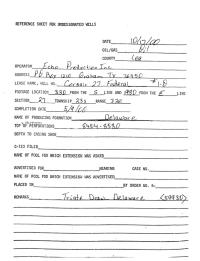 REFERENCE SHEET FOR UNDESIGNATED WELLS
DATE 10/17/00
OIL/GAS Oil
COUNTY Lea
OPERATOR Echo Production Inc
ADDRESS PO Box 1210 Graham TX 76450
LEASE NAME, WELL NO. Corsair 27 Federal #1-B
FOOTAGE LOCATION 330 FROM THE S LINE AND 990 FROM THE E LINE
SECTION 27 TOWNSHIP 23S RANGE 32E
COMPLETION DATE
NAME OF PRODUCING FORMATION Delaware
TOP OF PERFORATIONS 8484-8530
DEPTH TO CASING SHOE
C-123 FILED
NAME OF POOL FOR WHICH EXTENSION WAS ASKED
ADVERTISED FOR HEARING CASE NO.
NAME OF POOL FOR WHICH EXTENSION WAS ADVERTISED
PLACED IN BY ORDER NO. R-
REMARKS Triste Draw Delaware